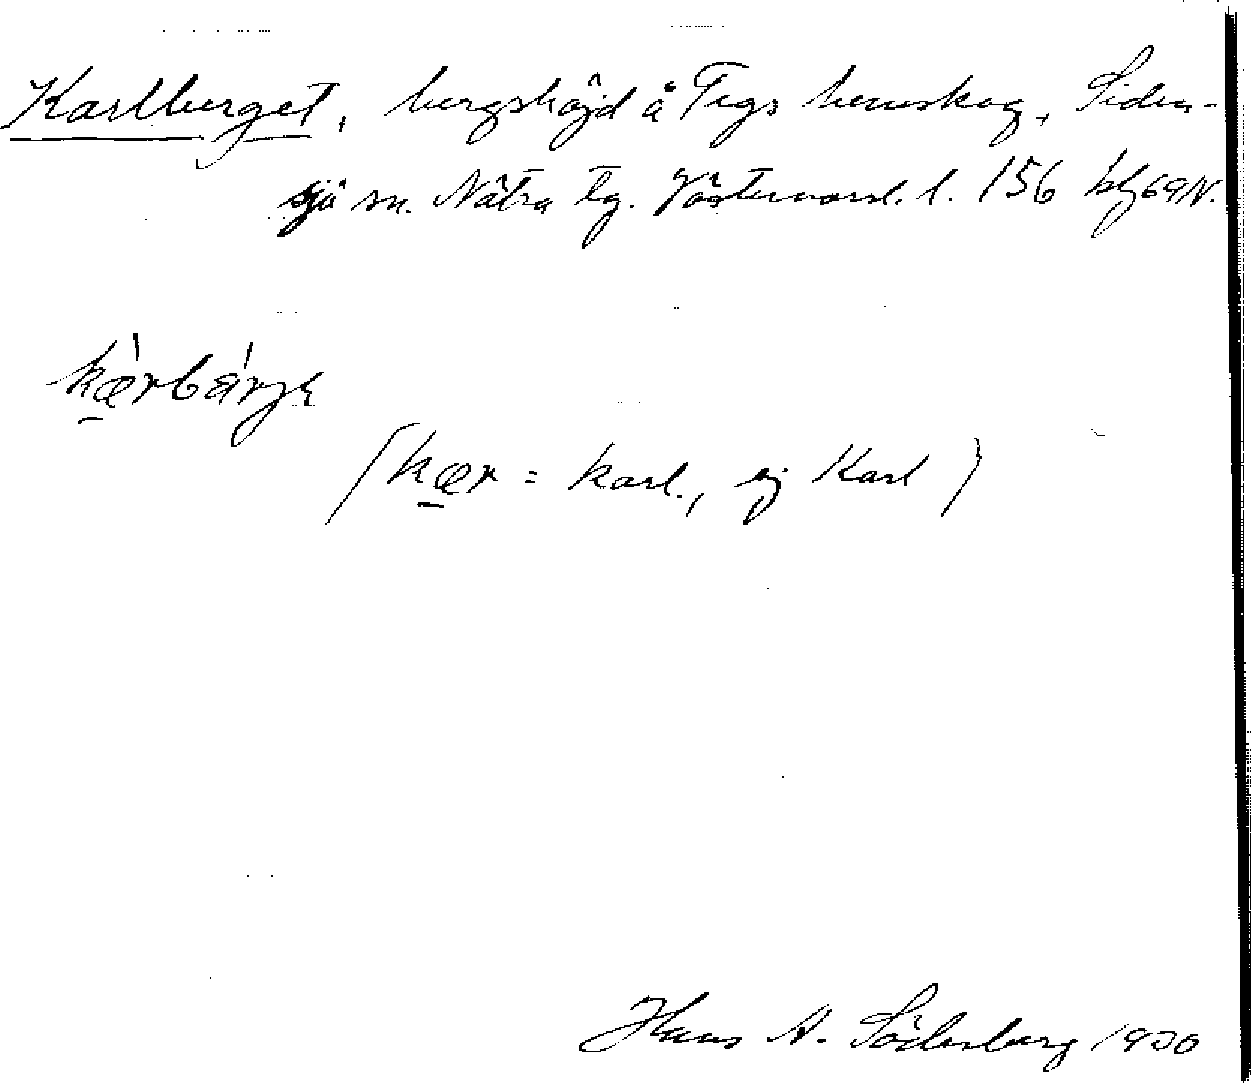 Karlberget, bergshöjd å Tegs hemskog, Siden-
sjö sn. Nätra tg. Västernorrl. l. 156 kbl 69 N.
kærbärje
(kær = karl., ej Karl)
Hans A. Söderberg 1930